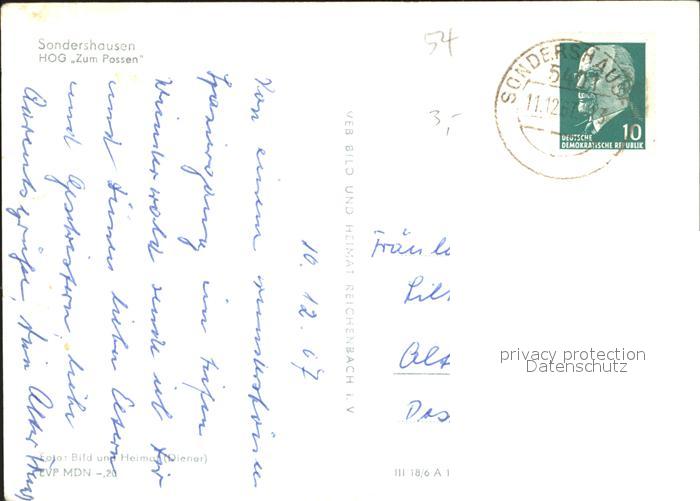 Sondershausen
HOG „Zum Possen"
54
3,-
SONDERSHAUSEN
5401
11.12.67
10
DEUTSCHE
DEMOKRATISCHE REPUBLIK
10. 12. 67
Von einem wunderschönen
Spaziergang im tiefen
Winterwald sende ich Dir
und Deinen lieben Eltern
und Geschwistern, liebe
Adventsgrüße, Dein Alter
VEB BILD UND HEIMAT REICHENBACH I. V
Fräule
Alt
privacy protection
Datenschutz
Foto: Bild und Heimat (Diener)
EVP MDN -,20
III 18/6 A 1